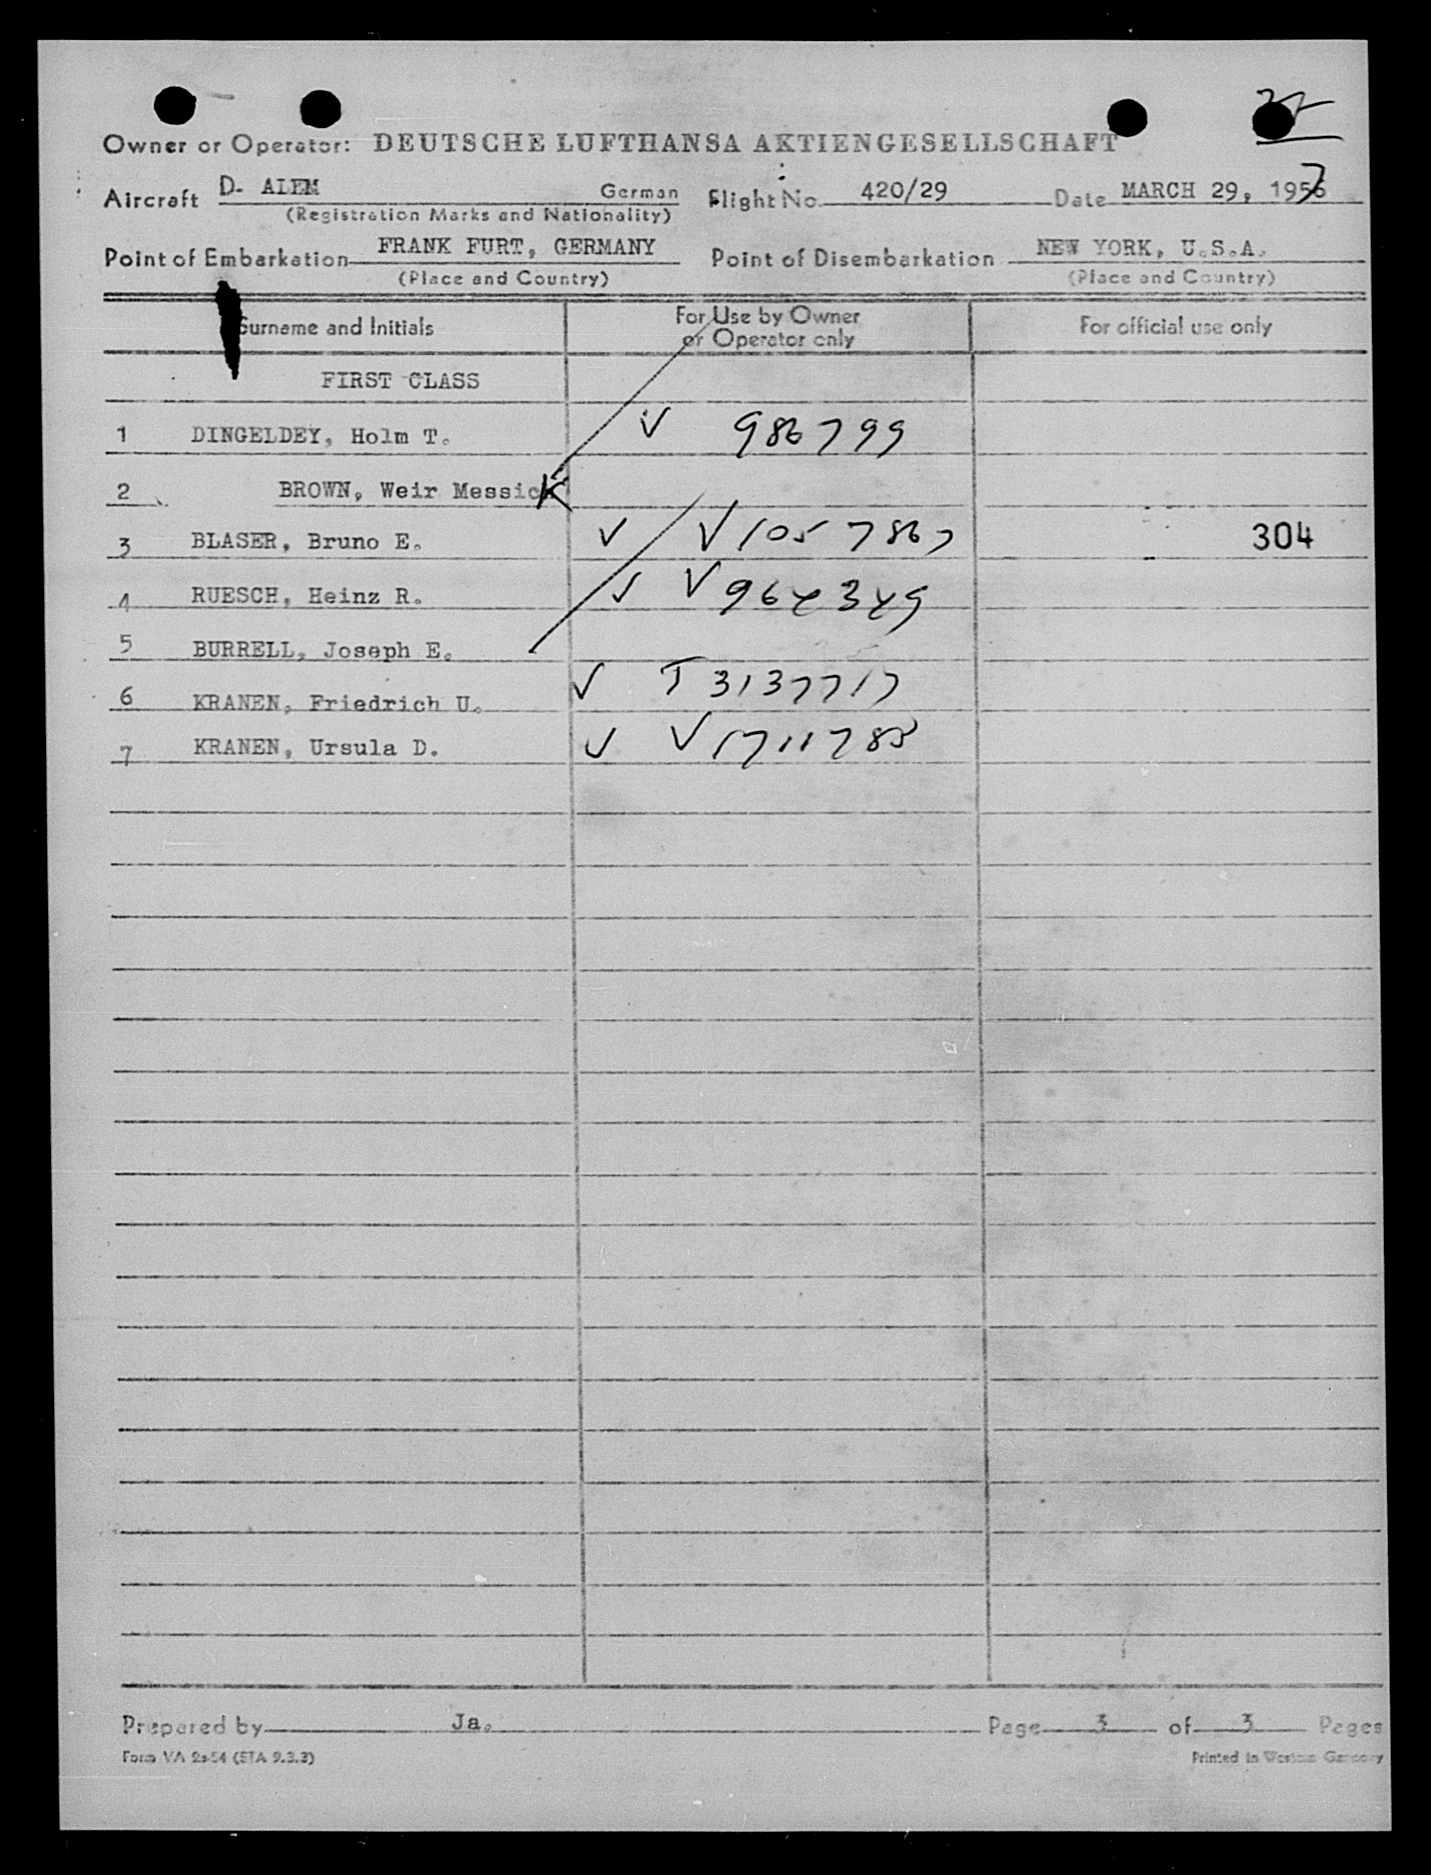 Owner or Operator: DEUTSCHE LUFTHANSA AKTIENGESELLSCHAFT
Aircraft D- ALEM German Flight No. 420/29 Date MARCH 29, 1957
(Registration Marks and Nationality)
Point of Embarkation FRANK FURT, GERMANY Point of Disembarkation NEW YORK, U.S.A.
(Place and Country) (Place and Country)
Surname and Initials For Use by Owner or Operator only For official use only
FIRST CLASS
1 DINGELDEY, Holm T. V 986799
2 BROWN, Weir Messick
3 BLASER, Bruno E. V V1057867 304
4 RUESCH, Heinz R. V V964349
5 BURRELL, Joseph E.
6 KRANEN, Friedrich U. V T3137717
7 KRANEN, Ursula D. V V1711788
Prepared by Ja. Page 3 of 3 Pages
Form VA 2a-54 (ETA 9.3.3) Printed in Western Germany